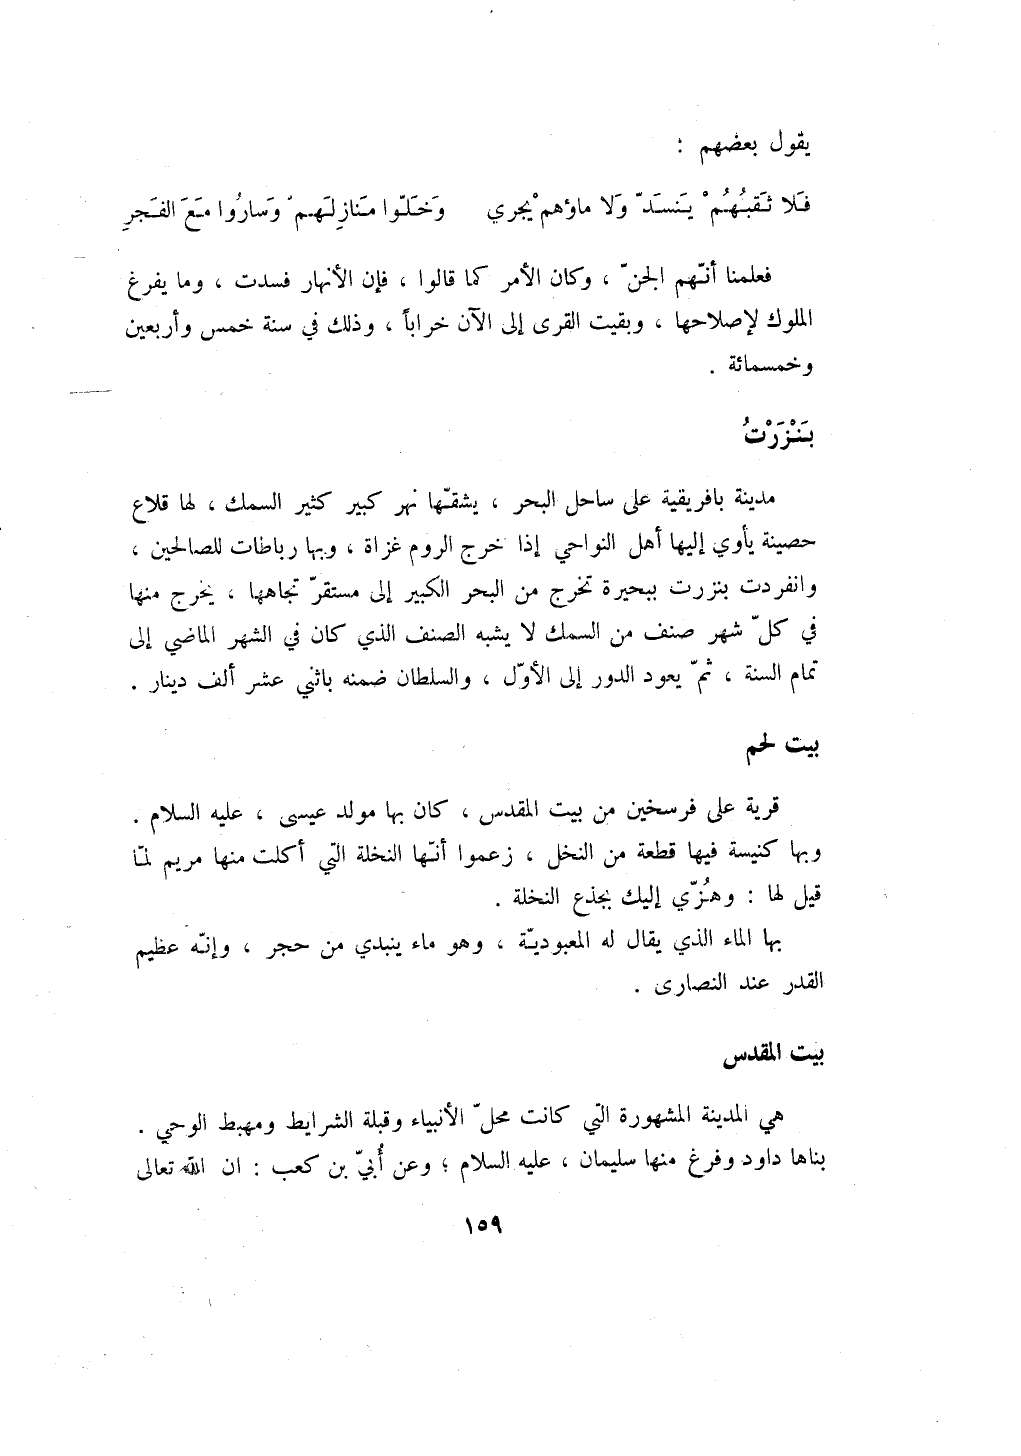 يقول بعضهم :
فَلا ثَقبُهُمْ يَنسَدّ وَلا ماؤهمْ يجري وَخَلّوا مَنازِلَهمْ وَسارُوا مَعَ الفَجرِ
فعلمنا أنّهم الجنّ ، وكان الأمر كما قالوا ، فإن الأنهار فسدت ، وما يفرغ
الملوك لإصلاحها ، وبقيت القرى إلى الآن خراباً ، وذلك في سنة خمس وأربعين
وخمسمائة .
بَنْزَرْتُ
مدينة بافريقية على ساحل البحر ، يشقّها نهر كبير كثير السمك ، لها قلاع
حصينة يأوي إليها أهل النواحي إذا خرج الروم غزاة ، وبها رباطات للصالحين ،
وانفردت بنزرت ببحيرة تخرج من البحر الكبير إلى مستقرّ تجاهها ، يخرج منها
في كلّ شهر صنف من السمك لا يشبه الصنف الذي كان في الشهر الماضي إلى
تمام السنة ، ثمّ يعود الدور إلى الأوّل ، والسلطان ضمنه باثني عشر ألف دينار .
بيت لحم
قرية على فرسخين من بيت المقدس ، كان بها مولد عيسى ، عليه السلام .
وبها كنيسة فيها قطعة من النخل ، زعموا أنّها النخلة التي أكلت منها مريم لمّا
قيل لها : وهُزّي إليك بجذع النخلة .
بها الماء الذي يقال له المعبوديّة ، وهو ماء ينبدي من حجر ، وإنّه عظيم
القدر عند النصارى .
بيت المقدس
هي المدينة المشهورة التي كانت محلّ الأنبياء وقبلة الشرايط ومهبط الوحي .
بناها داود وفرغ منها سليمان ، عليه السلام ؛ وعن أُبيّ بن كعب : ان الله تعالى
١٥٩